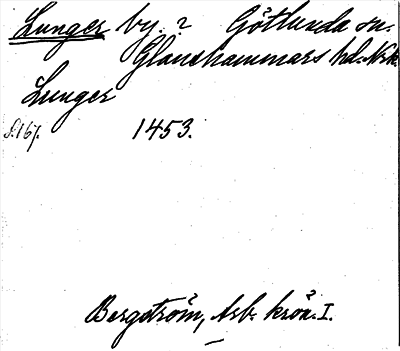 Lunger by. 2 Götlunda sn.
Glanshammars hd. Nrk.
Lunger
S. 167. 1453.
Bergström, Arb. krön. I.